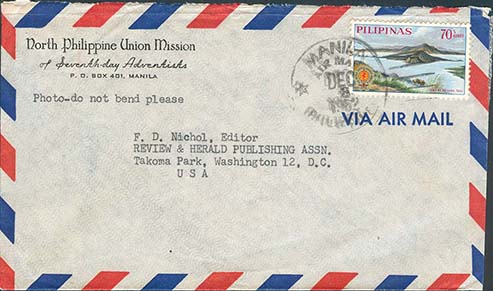 North Philippine Union Mission
of Seventh-day Adventists
P. O. BOX 401, MANILA
Photo-do not bend please
PILIPINAS
70
MANILA
AIR MA
DEC
1962
VIA AIR MAIL
F. D. Nichol, Editor
REVIEW & HERALD PUBLISHING ASSN.
Takoma Park, Washington 12, D.C.
U S A